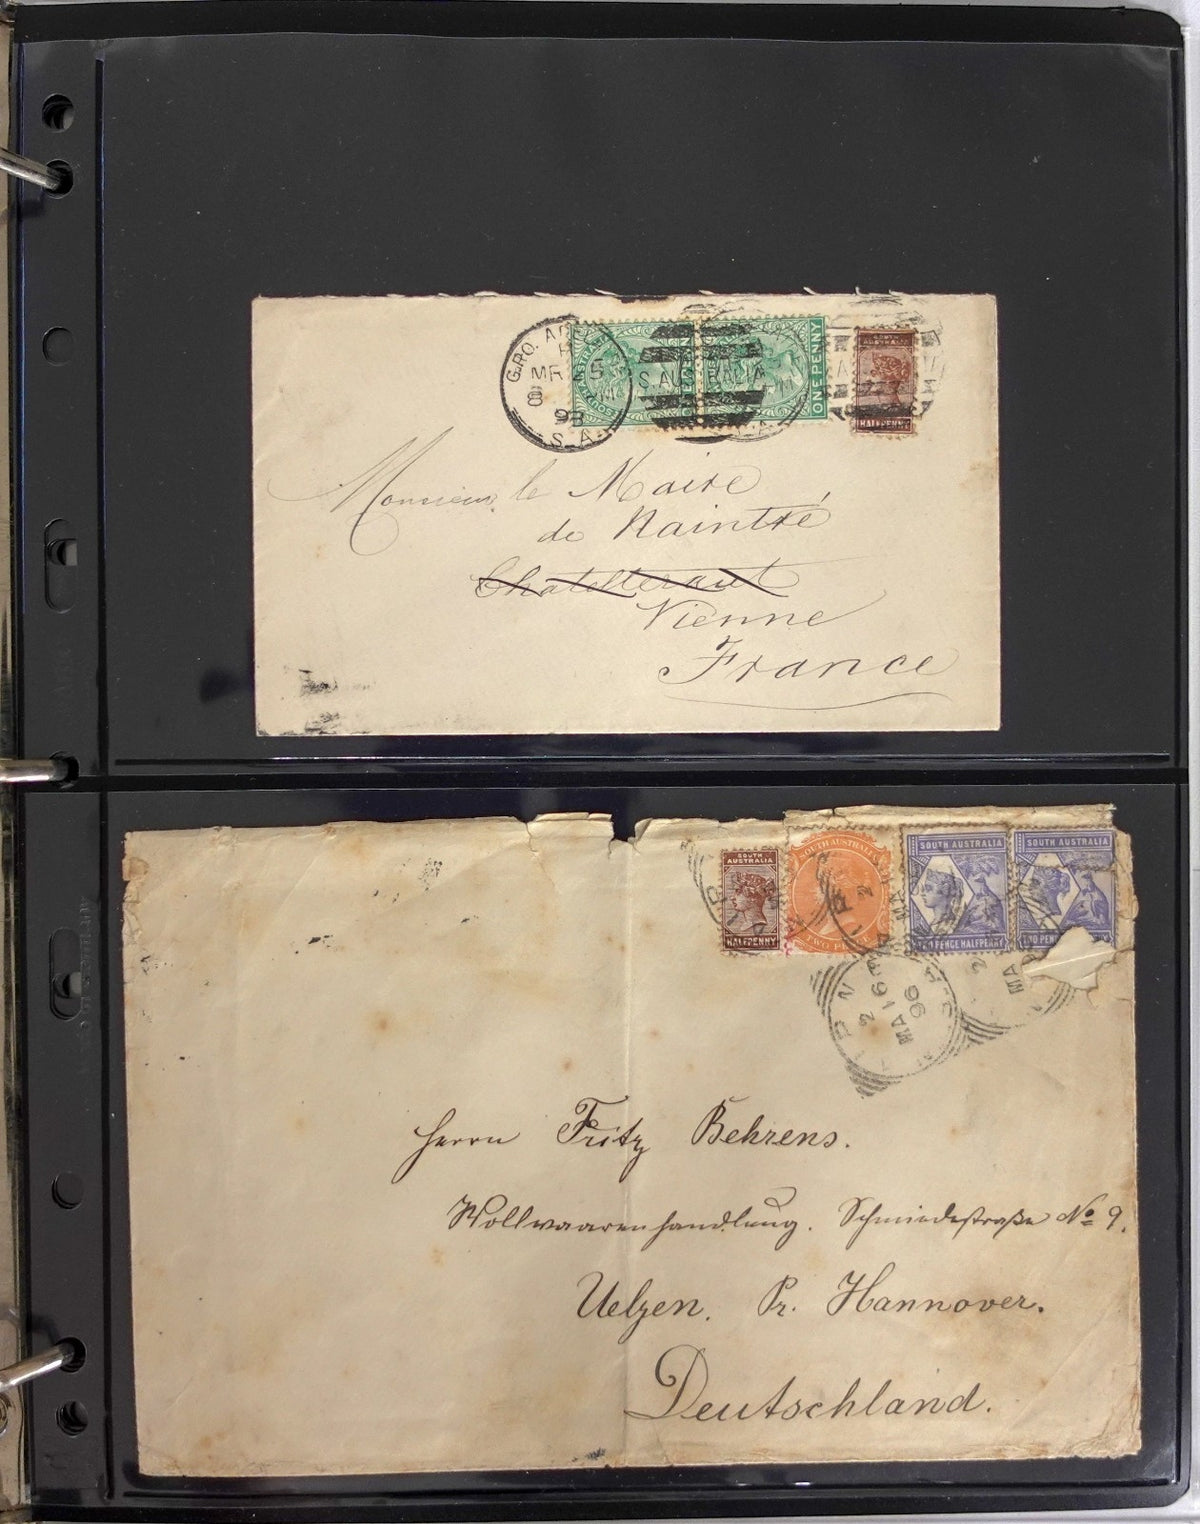 G.P.O. A
MR 5
8
93
S.A.
S. AUSTRALIA
ONE PENNY
SOUTH AUSTRALIA
HALFPENNY
Monsieur le Maire
de Naintré
Chatelleraut
Vienne
France
SOUTH AUSTRALIA
HALFPENNY
SOUTH AUSTRALIA
TWO
SOUTH AUSTRALIA
TWO PENCE HALFPENNY
SOUTH AUSTRALIA
TWO PEN
2
MA 16
96
2
MA
Herrn Fritz Behrens.
Wollwaarenhandlung. Schmiedestraße No 9.
Uelzen. Pr. Hannover.
Deutschland.